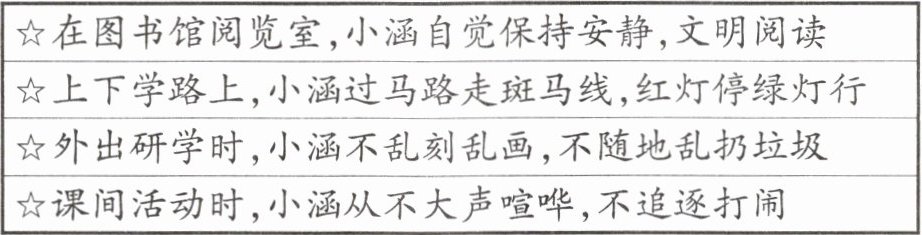 ☆在图书馆阅览室,小涵自觉保持安静,文明阅读
☆上下学路上,小涵过马路走斑马线,红灯停绿灯行
☆外出研学时,小涵不乱刻乱画,不随地乱扔垃圾
☆课间活动时,小涵从不大声喧哗,不追逐打闹